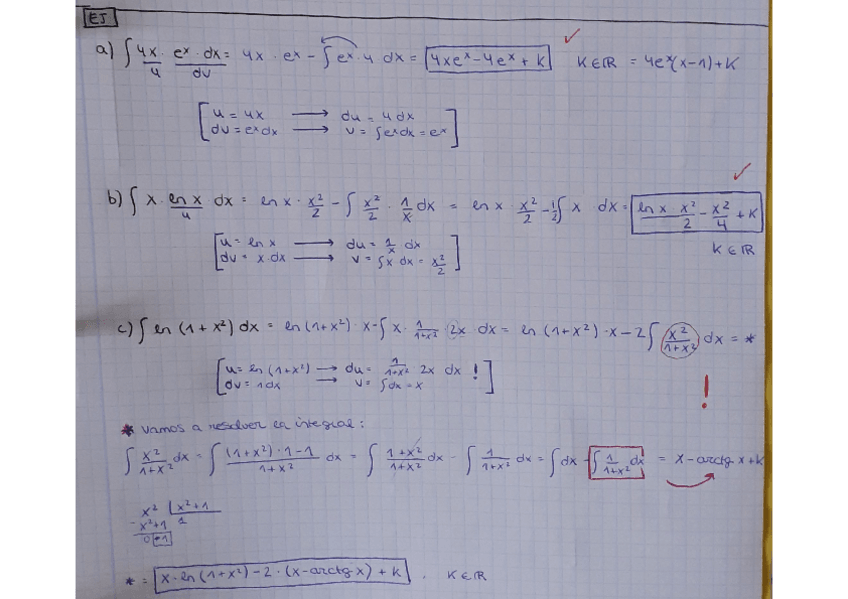 EJ
a) ∫ 4x · eˣ · dx = 4x · eˣ - ∫ eˣ · 4 dx = 4xeˣ - 4eˣ + k   K ∈ ℝ = 4eˣ(x-1)+K
u   dv
[u = 4x → du = 4 dx
dv = eˣdx → v = ∫eˣdx = eˣ]
b) ∫ x · ln x dx = ln x · x²/2 - ∫ x²/2 · 1/x dx = ln x · x²/2 - 1/2 ∫ x dx = ln x · x²/2 - x²/4 + k
u
K ∈ ℝ
[u = ln x → du = 1/x dx
dv = x · dx → v = ∫x dx = x²/2]
c) ∫ ln (1 + x²) dx = ln (1+x²) · x - ∫ x · 1/1+x² · 2x dx = ln (1+x²) · x - 2 ∫ x²/1+x² dx = *
[u = ln (1+x²) → du = 1/1+x² 2x dx !
dv = 1dx → v = ∫dx = x]
!
* Vamos a resolver la integral:
∫ x²/1+x² dx = ∫ (1+x²)·1-1/1+x² dx = ∫ 1+x²/1+x² dx - ∫ 1/1+x² dx = ∫ dx - ∫ 1/1+x² dx = x - arctg x + k
x² | x²+1
- x²+1 1
0 -1
* = x · ln (1+x²) - 2 · (x - arctg x) + k . K ∈ ℝ